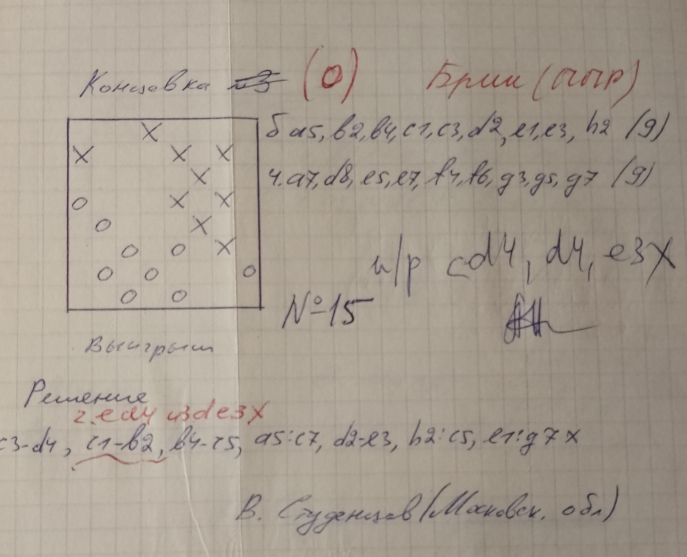 Концовка №3 (0) Брии (тыр)
б a5, b2, b4, c1, c3, d2, e1, e3, h2 (9)
ч. a7, d8, e5, e7, f4, f6, g3, g5, g7 (9)
н/р cd4, d4, e3X
№15
Выигрыш
Решение
2. ed4 и de3X
c3-d4, c1-b2, b4-c5, a5:c7, d2-e3, h2:c5, e1:g7x
В. Студенцов (Московск. обл)